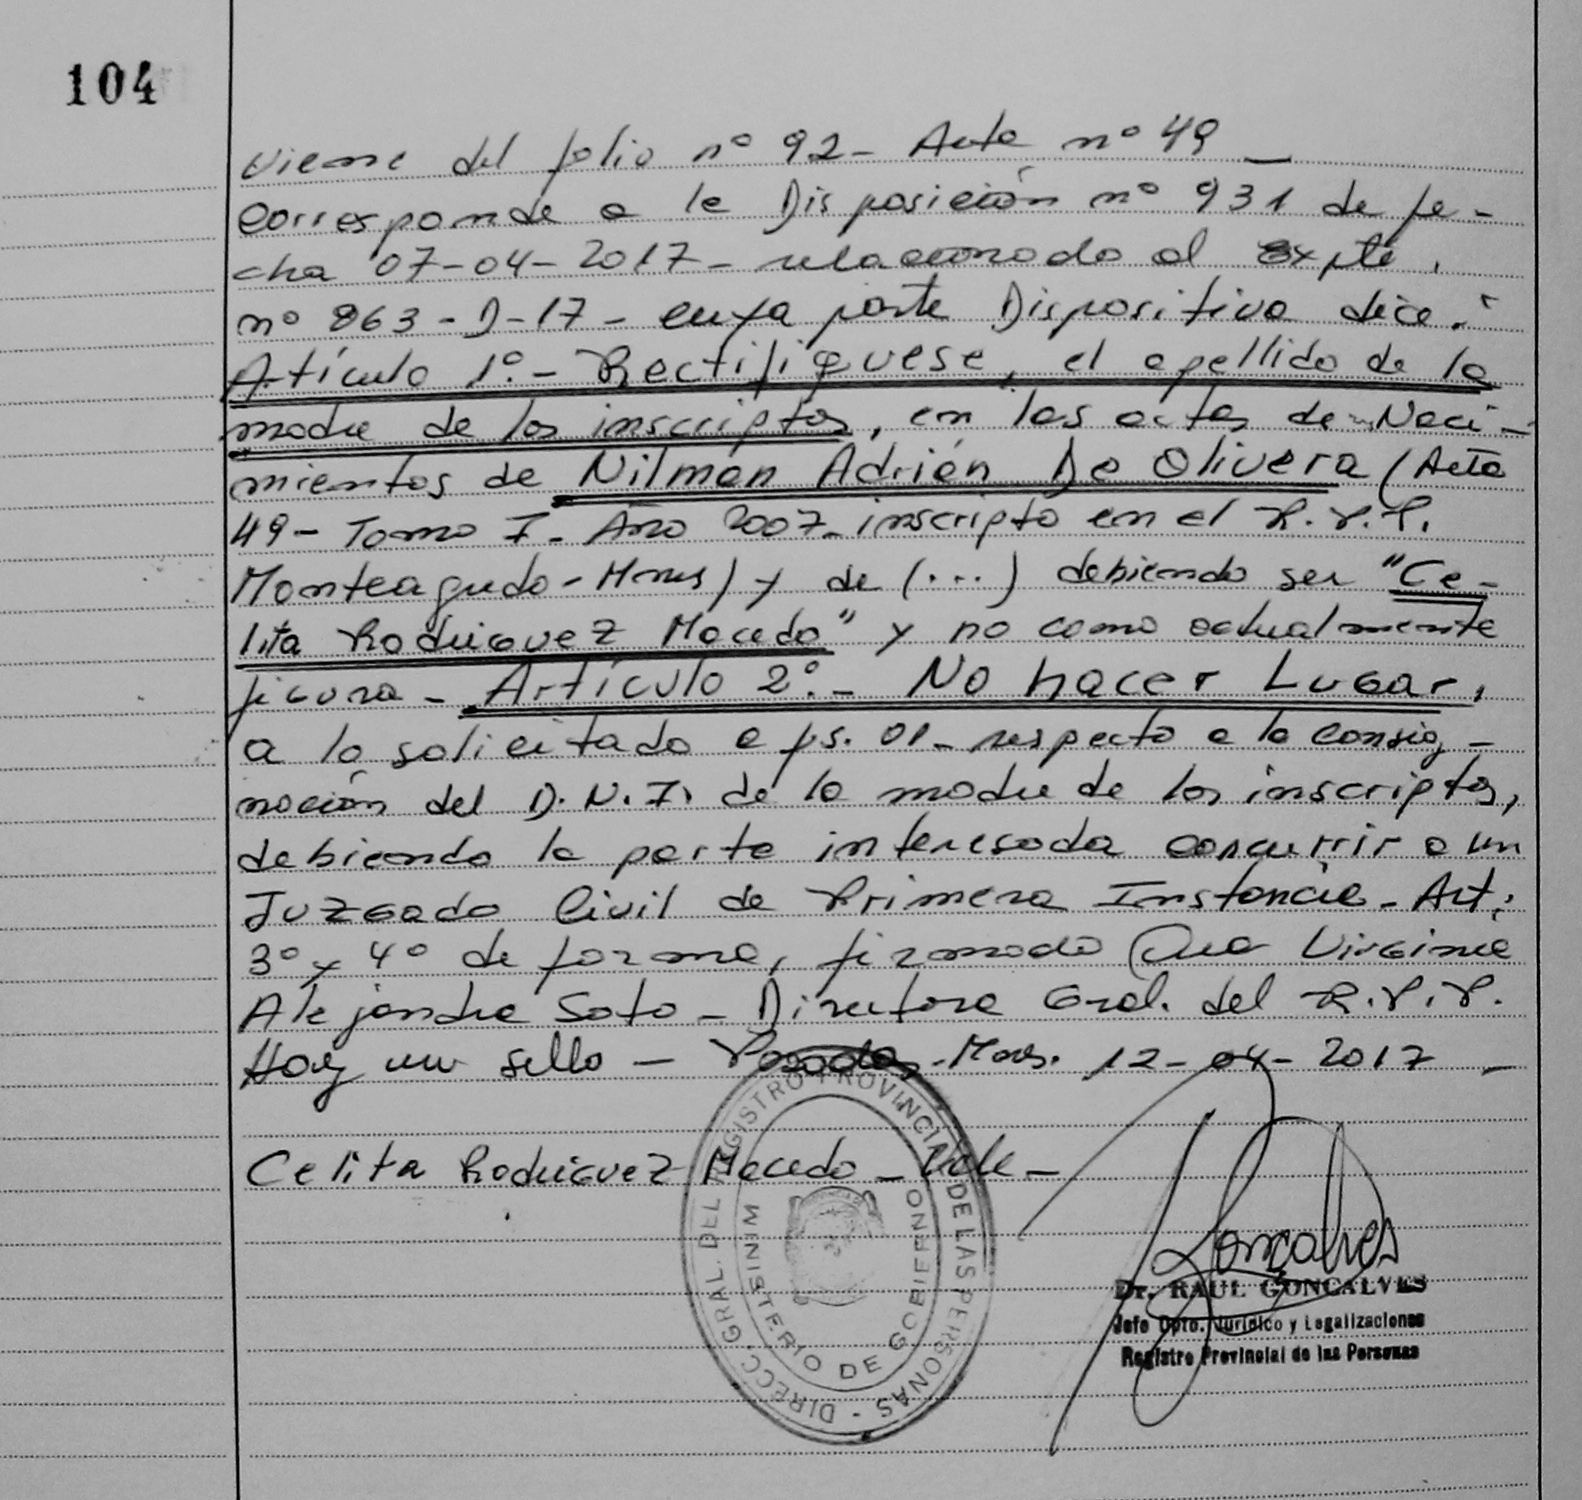 104
Viene del folio nº 92- Acta nº 49 -
Corresponde a la Disposición nº 931 de fe-
cha 07-04-2017- relacionado al Expte.
nº 863-D-17- cuya parte Dispositiva dice:"
Artículo 1º.- Rectifíquese, el apellido de la
madre de los inscriptos, en las actas de Naci-
mientos de Nilmán Adrián De Olivera (Acta
49- Tomo I- Año 2007- inscripto en el R.P.P.
Monteagudo-Mnes) y de (...) debiendo ser "Ce-
lita Rodriguez Macedo" y no como actualmente
figura- Artículo 2º.- No hacer Lugar,
a lo solicitado a fs. 01- respecto a la consig-
nación del D.N.I. de la madre de los inscriptos,
debiendo la parte interesada concurrir a un
Juzgado Civil de Primera Instancia- Art.
3º y 4º de forma, firmado Dra Virginia
Alejandra Soto- Directora Gral. del R.P.P.
Hay un sello - Posadas, Mnes. 12-04-2017 -
Celita Rodriguez Macedo - Vale -
DIRECC. GRAL. DEL REGISTRO PROVINCIAL DE LAS PERSONAS -
MINISTERIO DE GOBIERNO
Goncalves
Dr. RAUL GONCALVES
Jefe Dpto. Jurídico y Legalizaciones
Registro Provincial de las Personas